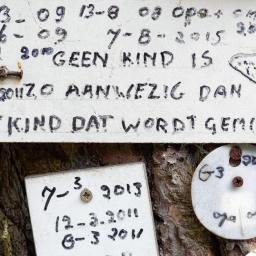 3- 09 13-8 09 opa +
6- 09 7-8-2015
GEEN KIND IS
ZO AANWEZIG DAN
KIND DAT WORDT GEMI
7-3 2013
12-3.2011
6-3 2011
6-3
opa